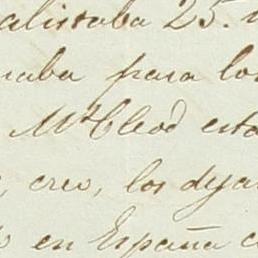 alistaba 25.
naba para los
McCleod esta
, creo, los deja
en España c